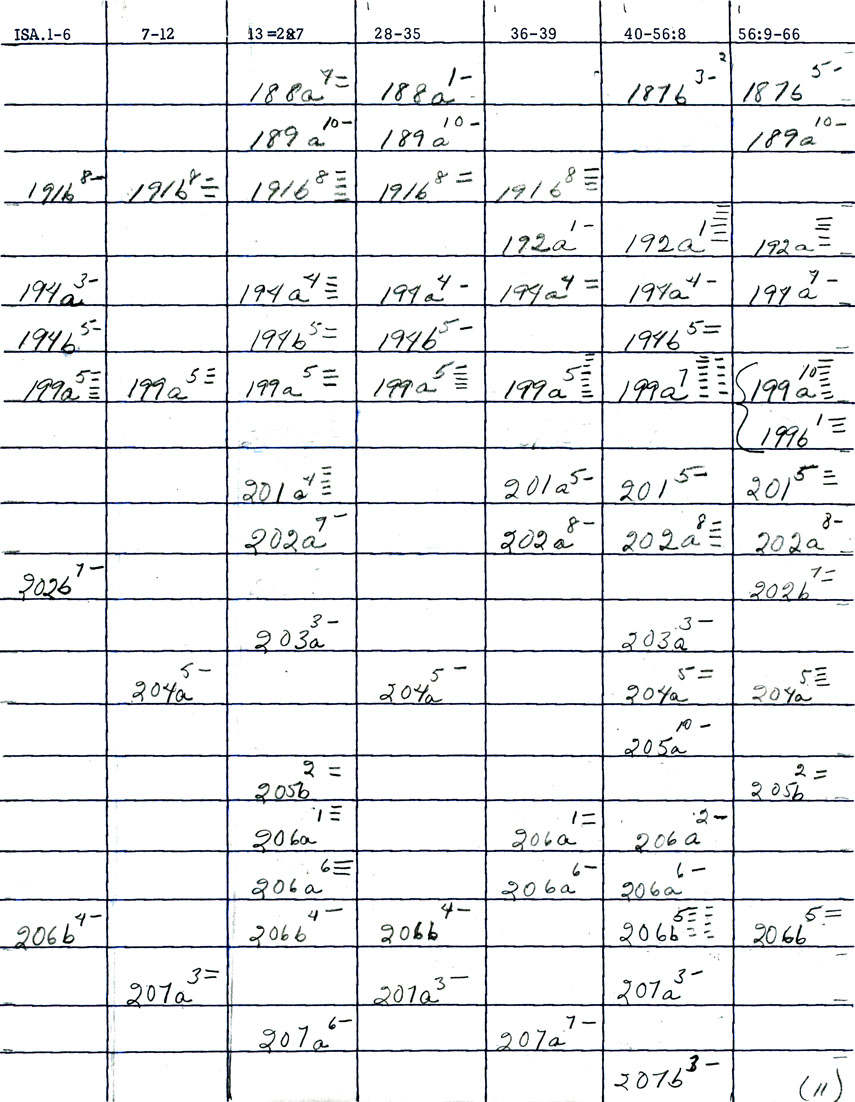 ISA.1-6 7-12 13=287 28-35 36-39 40-56:8 56:9-66
188a⁷= 188a¹- 187b³-² 187b⁵-
189a¹⁰- 189a¹⁰- 189a¹⁰-
191b⁸- 191b⁸≡ 191b⁸ 191b⁸= 191b⁸
192a¹- 192a¹ 192a
194a³- 194a⁴ 194a⁴- 194a⁴= 194a⁴- 194a⁷-
194b⁵- 194b⁵= 194b⁵- 194b⁵=
199a⁵ 199a⁵≡ 199a⁵≡ 199a⁵ 199a⁵ 199a⁷ 199a¹⁰
199b¹≡
201a⁴ 201a⁵- 201⁵- 201⁵≡
202a⁷- 202a⁸- 202a⁸ 202a⁸-
202b⁷- 202b⁷=
203a³- 203a³-
204a⁵- 204a⁵- 204a⁵= 204a⁵≡
205a¹⁰-
205b²= 205b²=
206a¹≡ 206a¹= 206a²-
206a⁶≡ 206a⁶- 206a⁶-
206b⁴- 206b⁴- 206b⁴- 206b⁵ 206b⁵=
207a³= 207a³- 207a³-
207a⁶- 207a⁷-
207b³- (11)